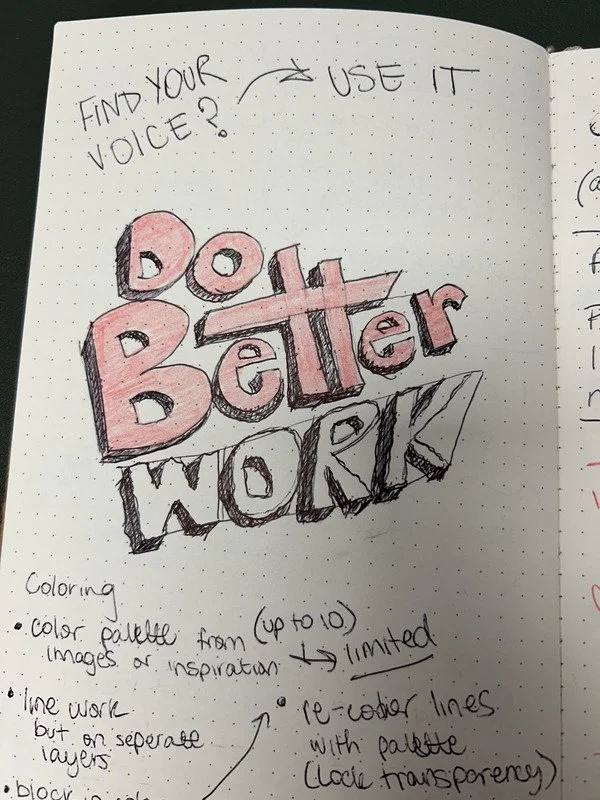 FIND YOUR
VOICE?
USE IT
Do
Better
WORK
Coloring
• color palette from (up to 10)
images or inspiration
limited
• line work
but on seperate
layers
• re-color lines
with palette
(lock transparency)
• block in